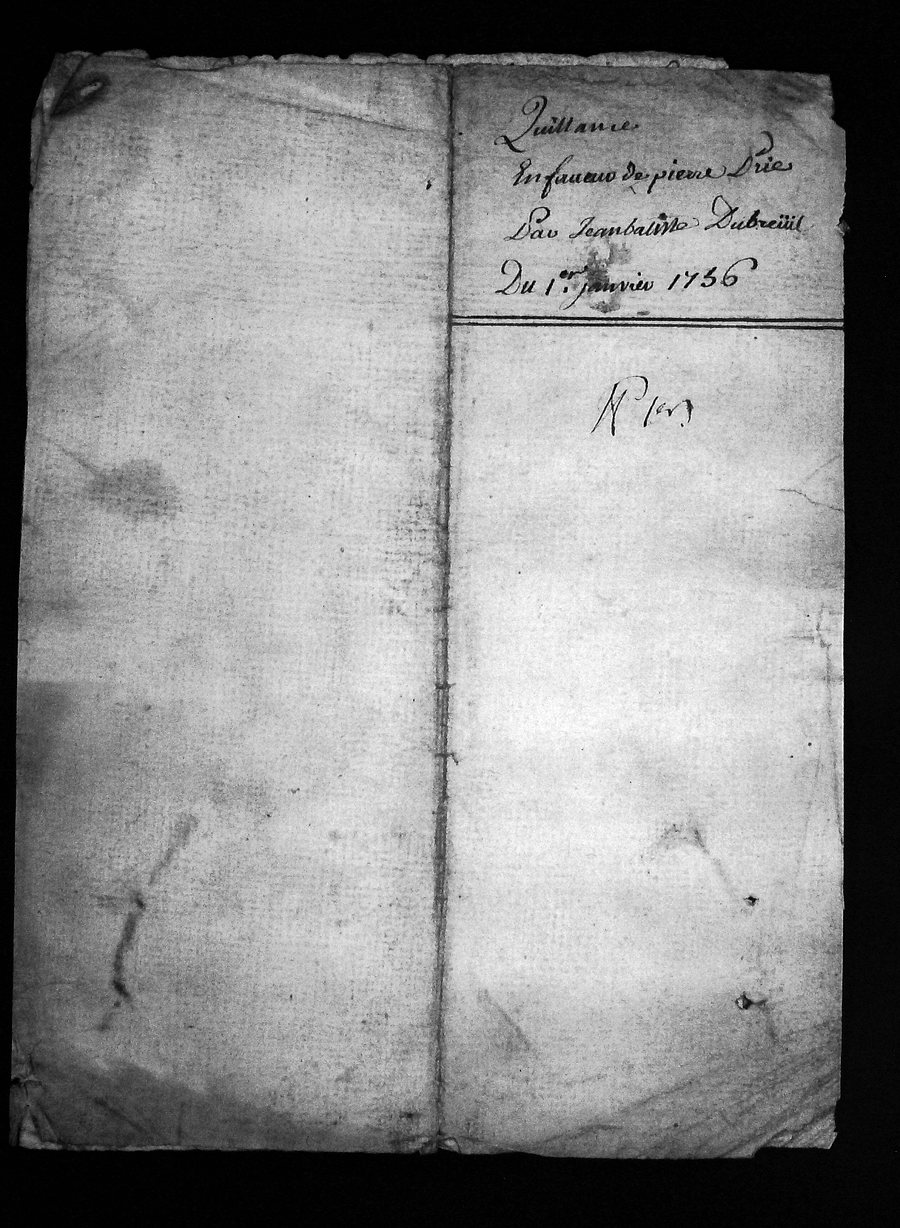 Quittance
En faueur de pierre Brie
Par Jean batiste Dubreüil
Du 1.er janvier 1736